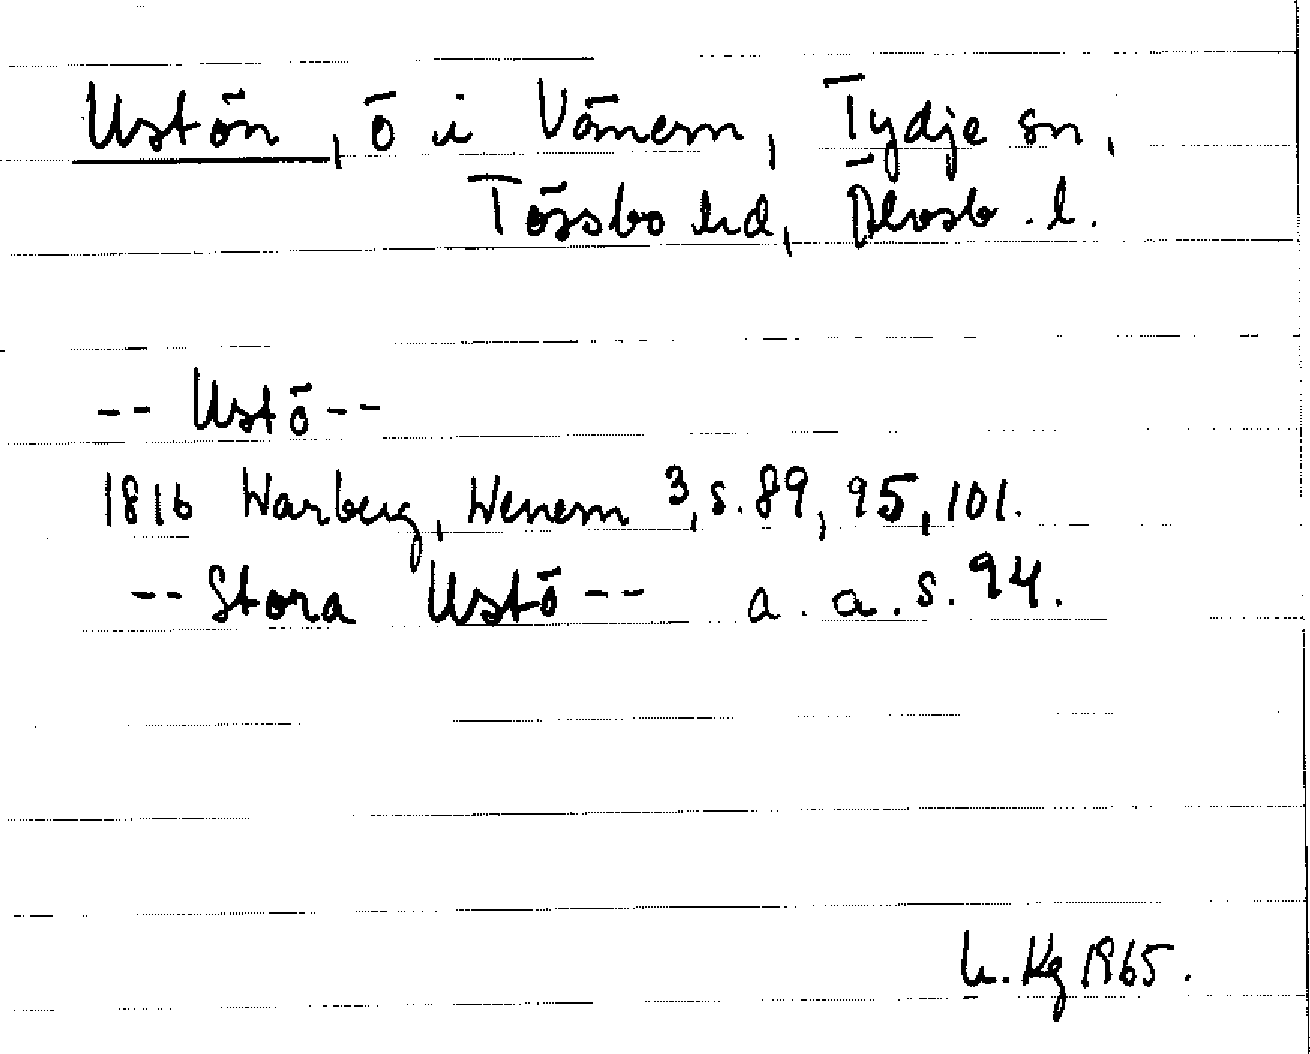 Ustön, ö i Vänern, Tydje sn,
Tössbo hd, Älvsb. l.
-- Ustö --
1816 Warberg, Wenern 3, s. 89, 95, 101.
-- Stora Ustö -- a. a. s. 94.
L. Kg 1965.